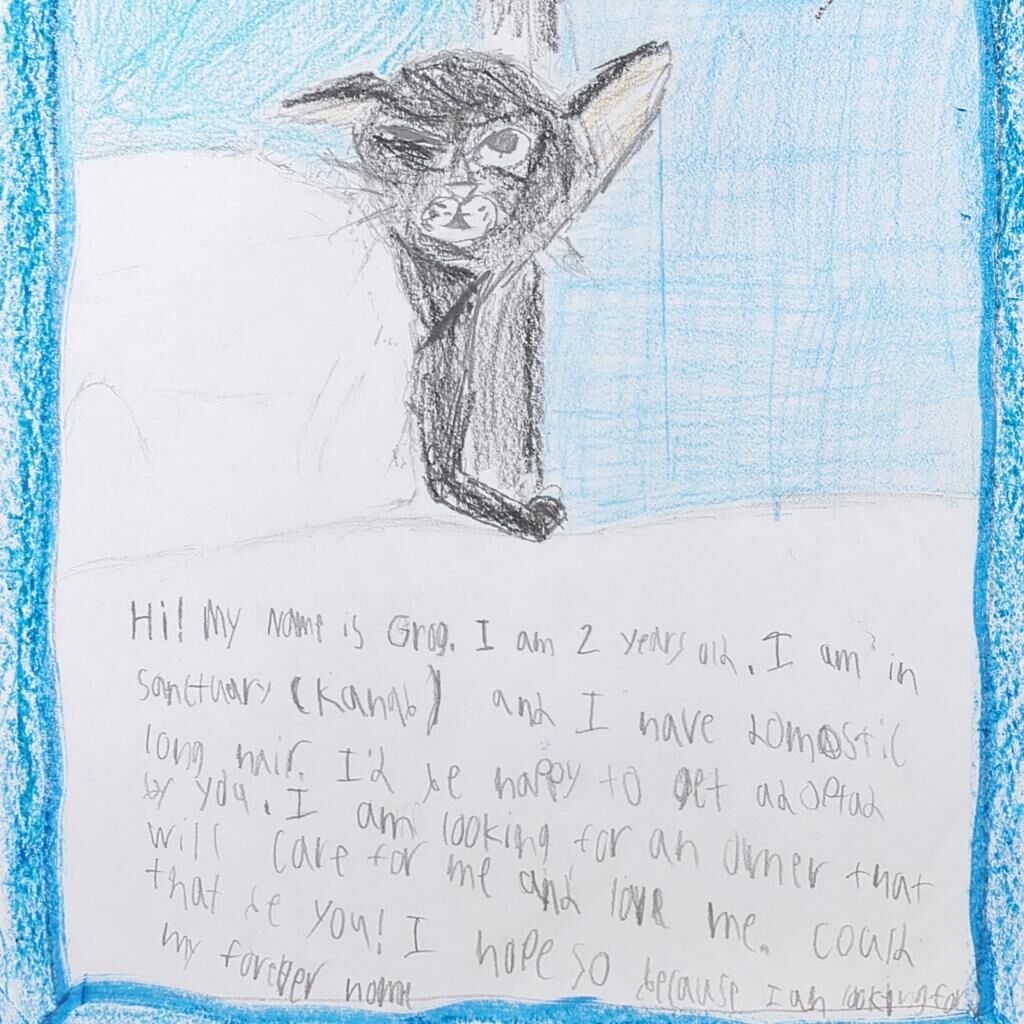 Hi! My name is Grog. I am 2 years old. I am in
sanctuary (Kanab) and I have domestic
long hair. I'd be happy to get adoptad
by you. I am looking for an owner that
will care for me and love me. Could
that be you! I hope so because I am looking for
my forever home